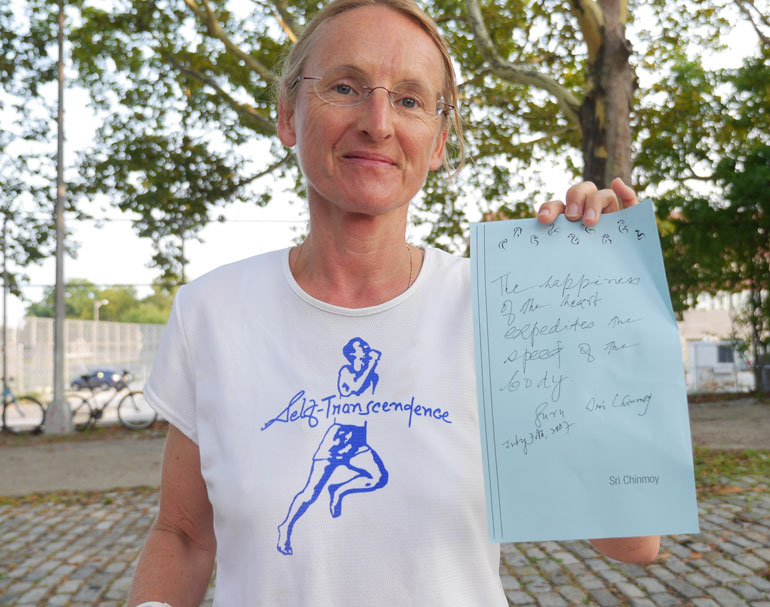 Self-Transcendence
The happiness
of the heart
expedites the
speed of the
body.
Guru Sri Chinmoy
July 30th, 2007
Sri Chinmoy